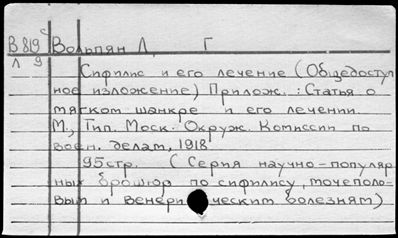 В 819 с Вольпян Л. Г
Л 9
Сифилис и его лечение (Общедоступ
ное изложение) Прилож.: Статья о
мягком шанкре и его лечении.
М., Тип. Моск. Окруж. Комиссии по
воен. делам, 1918.
95 стр. (Серия научно-популяр
ных брошюр по сифилису, мочеполо-
вым и венерическим болезням)